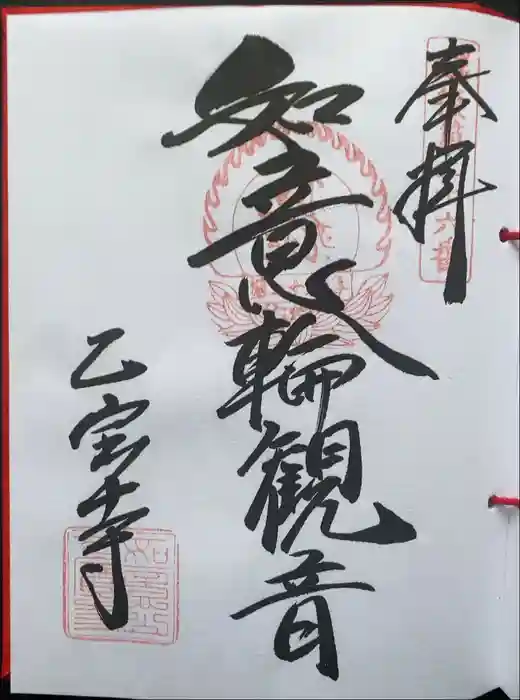 奉拝
如意輪観音
乙宝寺